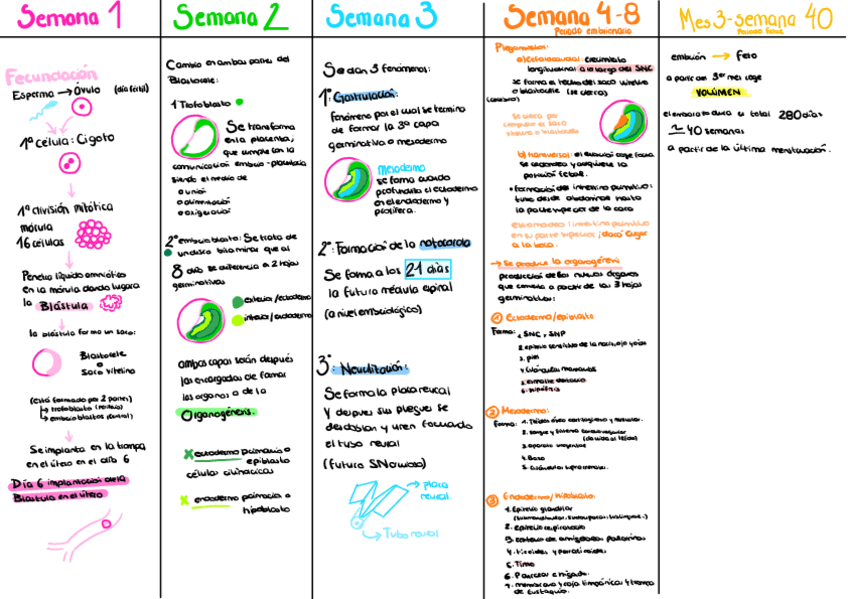 Semana 1
Fecundación
Esperma → Óvulo (día fértil)
1ª célula: Cigoto
1ª división mitótica
mórula
16 células
Penetra líquido amniótico
en la mórula dando lugar a
la Blástula
la blástula forma un saco:
Blastocele
o
saco vitelino
(está formado por 2 partes)
↳ trofoblasto
↳ embrioblastos
Se implanta en la trompa
en el útero en el día 6
Día 6 implantación de la
Blástula en el útero
Semana 2
Cambio en ambas partes del
Blastocele:
1 Trofoblasto
Se transforma
en la placenta,
que cumple con la
comunicación embrio-placentaria
siendo el medio de
o unión
o alimentación
o oxigenación
2º embrioblasto: Se trata de
un disco bilaminar que al
8 día se diferencia a 2 hojas
germinativas
exterior/ectodermo
interior/endodermo
ambas capas serán después
las encargadas de formar
los organos o de la
Organogénesis.
X ectodermo primario o
epiblasto
células cilíndricas
X endodermo primario o
hipoblasto
Semana 3
Se dan 3 fenómenos:
1º: Gastrulación:
fenómeno por el cual se termina
de formar la 3ª capa
germinativa o mesodermo
Mesodermo
se forma cuando
profundiza el ectodermo
en el endodermo y
prolifera.
2º: Formación de la notocorda
Se forma a los 21 días
la futura médula espinal
(a nivel embriológico)
3º: Neurulación:
Se forma la placa neural
y después sus pliegues se
desdoblan y unen formando
el tubo neural
(futuro SNervioso)
→ placa
neural
→ Tubo neural
Semana 4-8
Periodo embrionario
Plegamientos:
a) Cefalocaudal: crecimiento
longitudinal a lo largo del SNC
se forma el techo del saco vitelino
o blastocele (se cierra)
(cerebro)
Se cierra por
completo el saco
vitelino o blastocele
b) transversal: el embrión coge forma
se redondea y adquiere la
posición fetal.
• formación del intestino primitivo:
tubo desde abdominal hasta
la parte superior de la cara
estomodeo: intestino primitivo
en su parte superior, dará lugar
a la boca.
→ Se produce la organogénesis
producción de los nuevos órganos
que comienza a partir de las 3 hojas
germinativas:
① Ectodermo/epiblasto
Forma: 1. SNC, SNP
2. epitelio sensitivo de la nariz, ojo y oído
3. piel
4. Glándulas mamarias
5. esmalte dentario
6. hipófisis
② Mesodermo:
Forma: 1. Tejido óseo cartilaginoso y muscular.
2. sangre y sistema cardiovascular
3. aparato urogenital
4. Bazo
5. Glándulas suprarrenales.
③ Endodermo/hipoblasto:
1. Epitelio glandular
(submandibular, sublingual...)
2. epitelio respiratorio
3. epitelio de amígdalas palatinas
4. tiroides y paratiroides
5. Timo
6. Páncreas e hígado.
7. membrana y caja timpánicas y trompa
de Eustaquio.
Mes 3-semana 40
Periodo fetal
embrión → Feto
a partir del 3er mes coge
VOLUMEN
el embarazo dura en total 280 días
~ 40 semanas
a partir de la última menstruación.